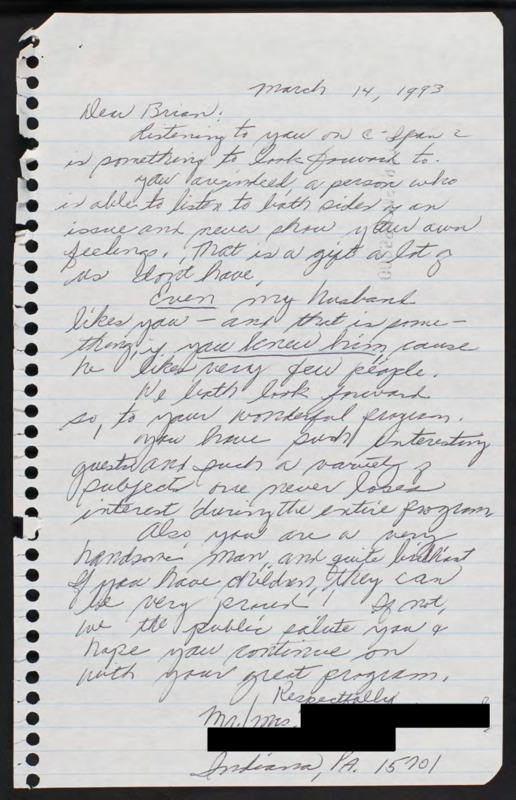 March 14, 1993
Dear Brian:
Listening to you on C-Span 2
is something to look forward to.
You are indeed a person who
is able to listen to both sides of an
issue and never show your own
feelings. That is a gift a lot of
us don't have.
Even my husband
likes you - and that is some-
thing, if you knew him, cause
he likes very few people.
We both look forward
so, to your wonderful program.
You have such interesting
guests and such a variety of
subjects one never loses
interest during the entire program
Also you are a very
handsome man, and quite brilliant
If you have children, they can
be very proud! If not,
we the public salute you &
hope you continue on
with your great program.
Respectfully
Mr./Mrs.
Indiana, PA. 15701